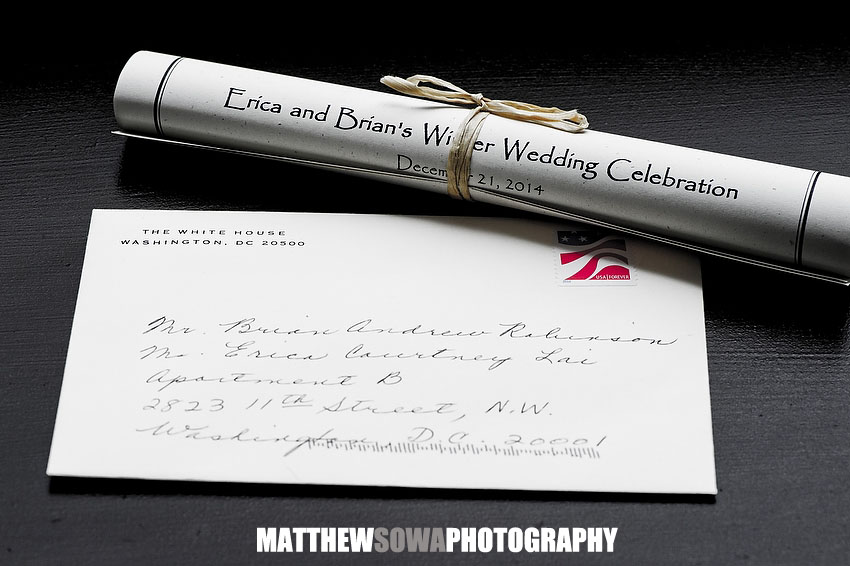 Erica and Brian's Wi er Wedding Celebration
Decem r 21, 2014
THE WHITE HOUSE
WASHINGTON, DC 20500
USA FOREVER
Mr. Brian Andrew Robinson
Ms. Erica Courtney Lai
Apartment B
2823 11th Street, N.W.
Washington, D.C. 20001
MATTHEWSOWAPHOTOGRAPHY